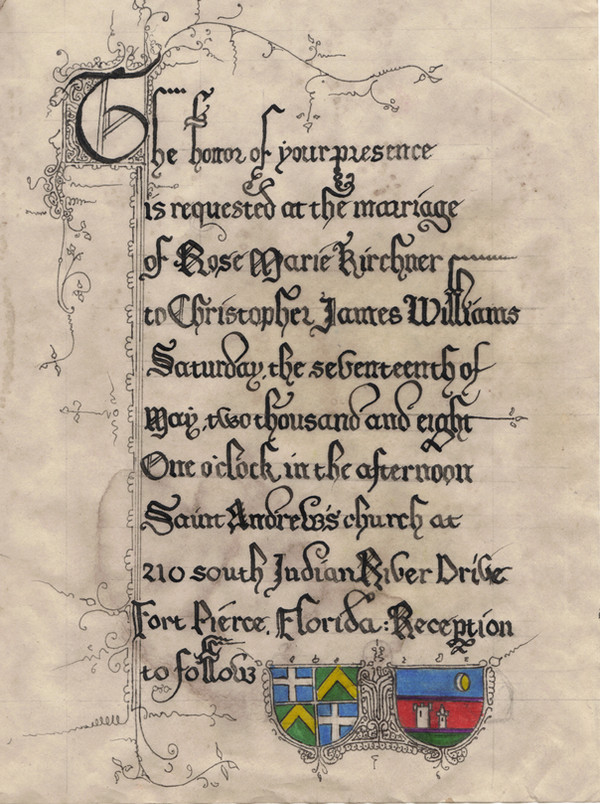 The honor of your presence
is requested at the marriage
of Rose Marie Kirchner
to Christopher James Williams
Saturday, the seventeenth of
May, two thousand and eight
One o'clock in the afternoon
Saint Andrew's church at
210 south Indian River Drive
Fort Pierce, Florida: Reception
to follow